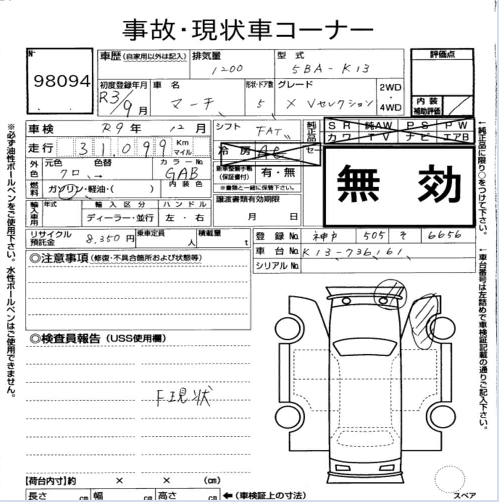 事故・現状車コーナー
No. 98094
車歴(自家用以外は記入) 排気量 1200 型式 5BA-K13
評価点
初度登録年月 R3/9月 車名 マーチ 形状・ドア数 5 グレード X Vセレクション 2WD・4WD
内装補助評価
車検 R9年 12月 シフト FAT
純正品 SR 純AW PS PW
カワ TV ナビ エアB
走行 31,099 Km マイル 冷房 AC
無効
外色 元色 クロ 色替 カラーNo. GAB 内装色
新車整備手帳(保証書付) 有・無
※書類と一緒に保管下さい。
燃料 ガソリン・軽油・( )
譲渡書類有効期限
月 日
輸入車 年式 輸入区分 ディーラー・並行 ハンドル 左・右
リサイクル預託金 8,350円 乗車定員 人 積載量 t
登録No. 神戸 505 そ 6656
車台No. K13-736161
シリアルNo.
◎注意事項(修復・不具合箇所および状態等)
◎検査員報告(USS使用欄)
F現状
【荷台内寸】約 × × (cm)
長さ cm 幅 cm 高さ cm ←(車検証上の寸法)
スペア
※必ず油性ボールペンをご使用下さい。水性ボールペンはご使用できません。
↑純正品に限り○をつけて下さい。
↑車台番号は左詰めで車検証記載の通りご記入下さい。